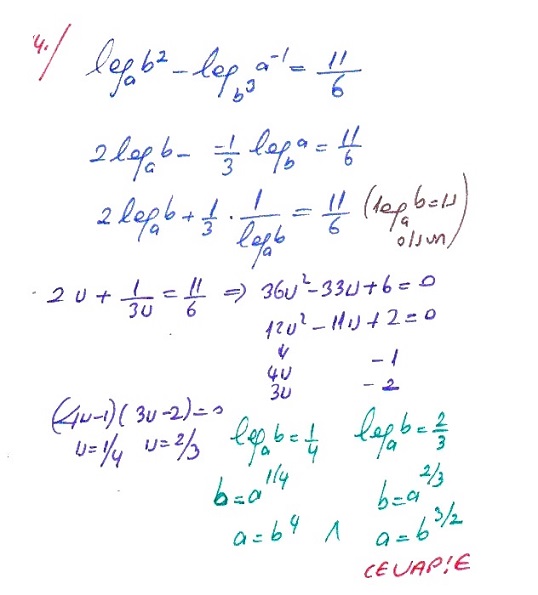 4./ log_a b² - log_{b³} a⁻¹ = 11/6
2 log_a b - -1/3 log_b a = 11/6
2 log_a b + 1/3 · 1/log_a b = 11/6 (log_a b = u olsun)
2u + 1/3u = 11/6 ⇒ 36u² - 33u + 6 = 0
12u² - 11u + 2 = 0
4u - 1
3u - 2
(4u-1)(3u-2) = 0
u = 1/4 u = 2/3
log_a b = 1/4 log_a b = 2/3
b = a^{1/4} b = a^{2/3}
a = b⁴ ∧ a = b^{3/2}
CEVAP: E